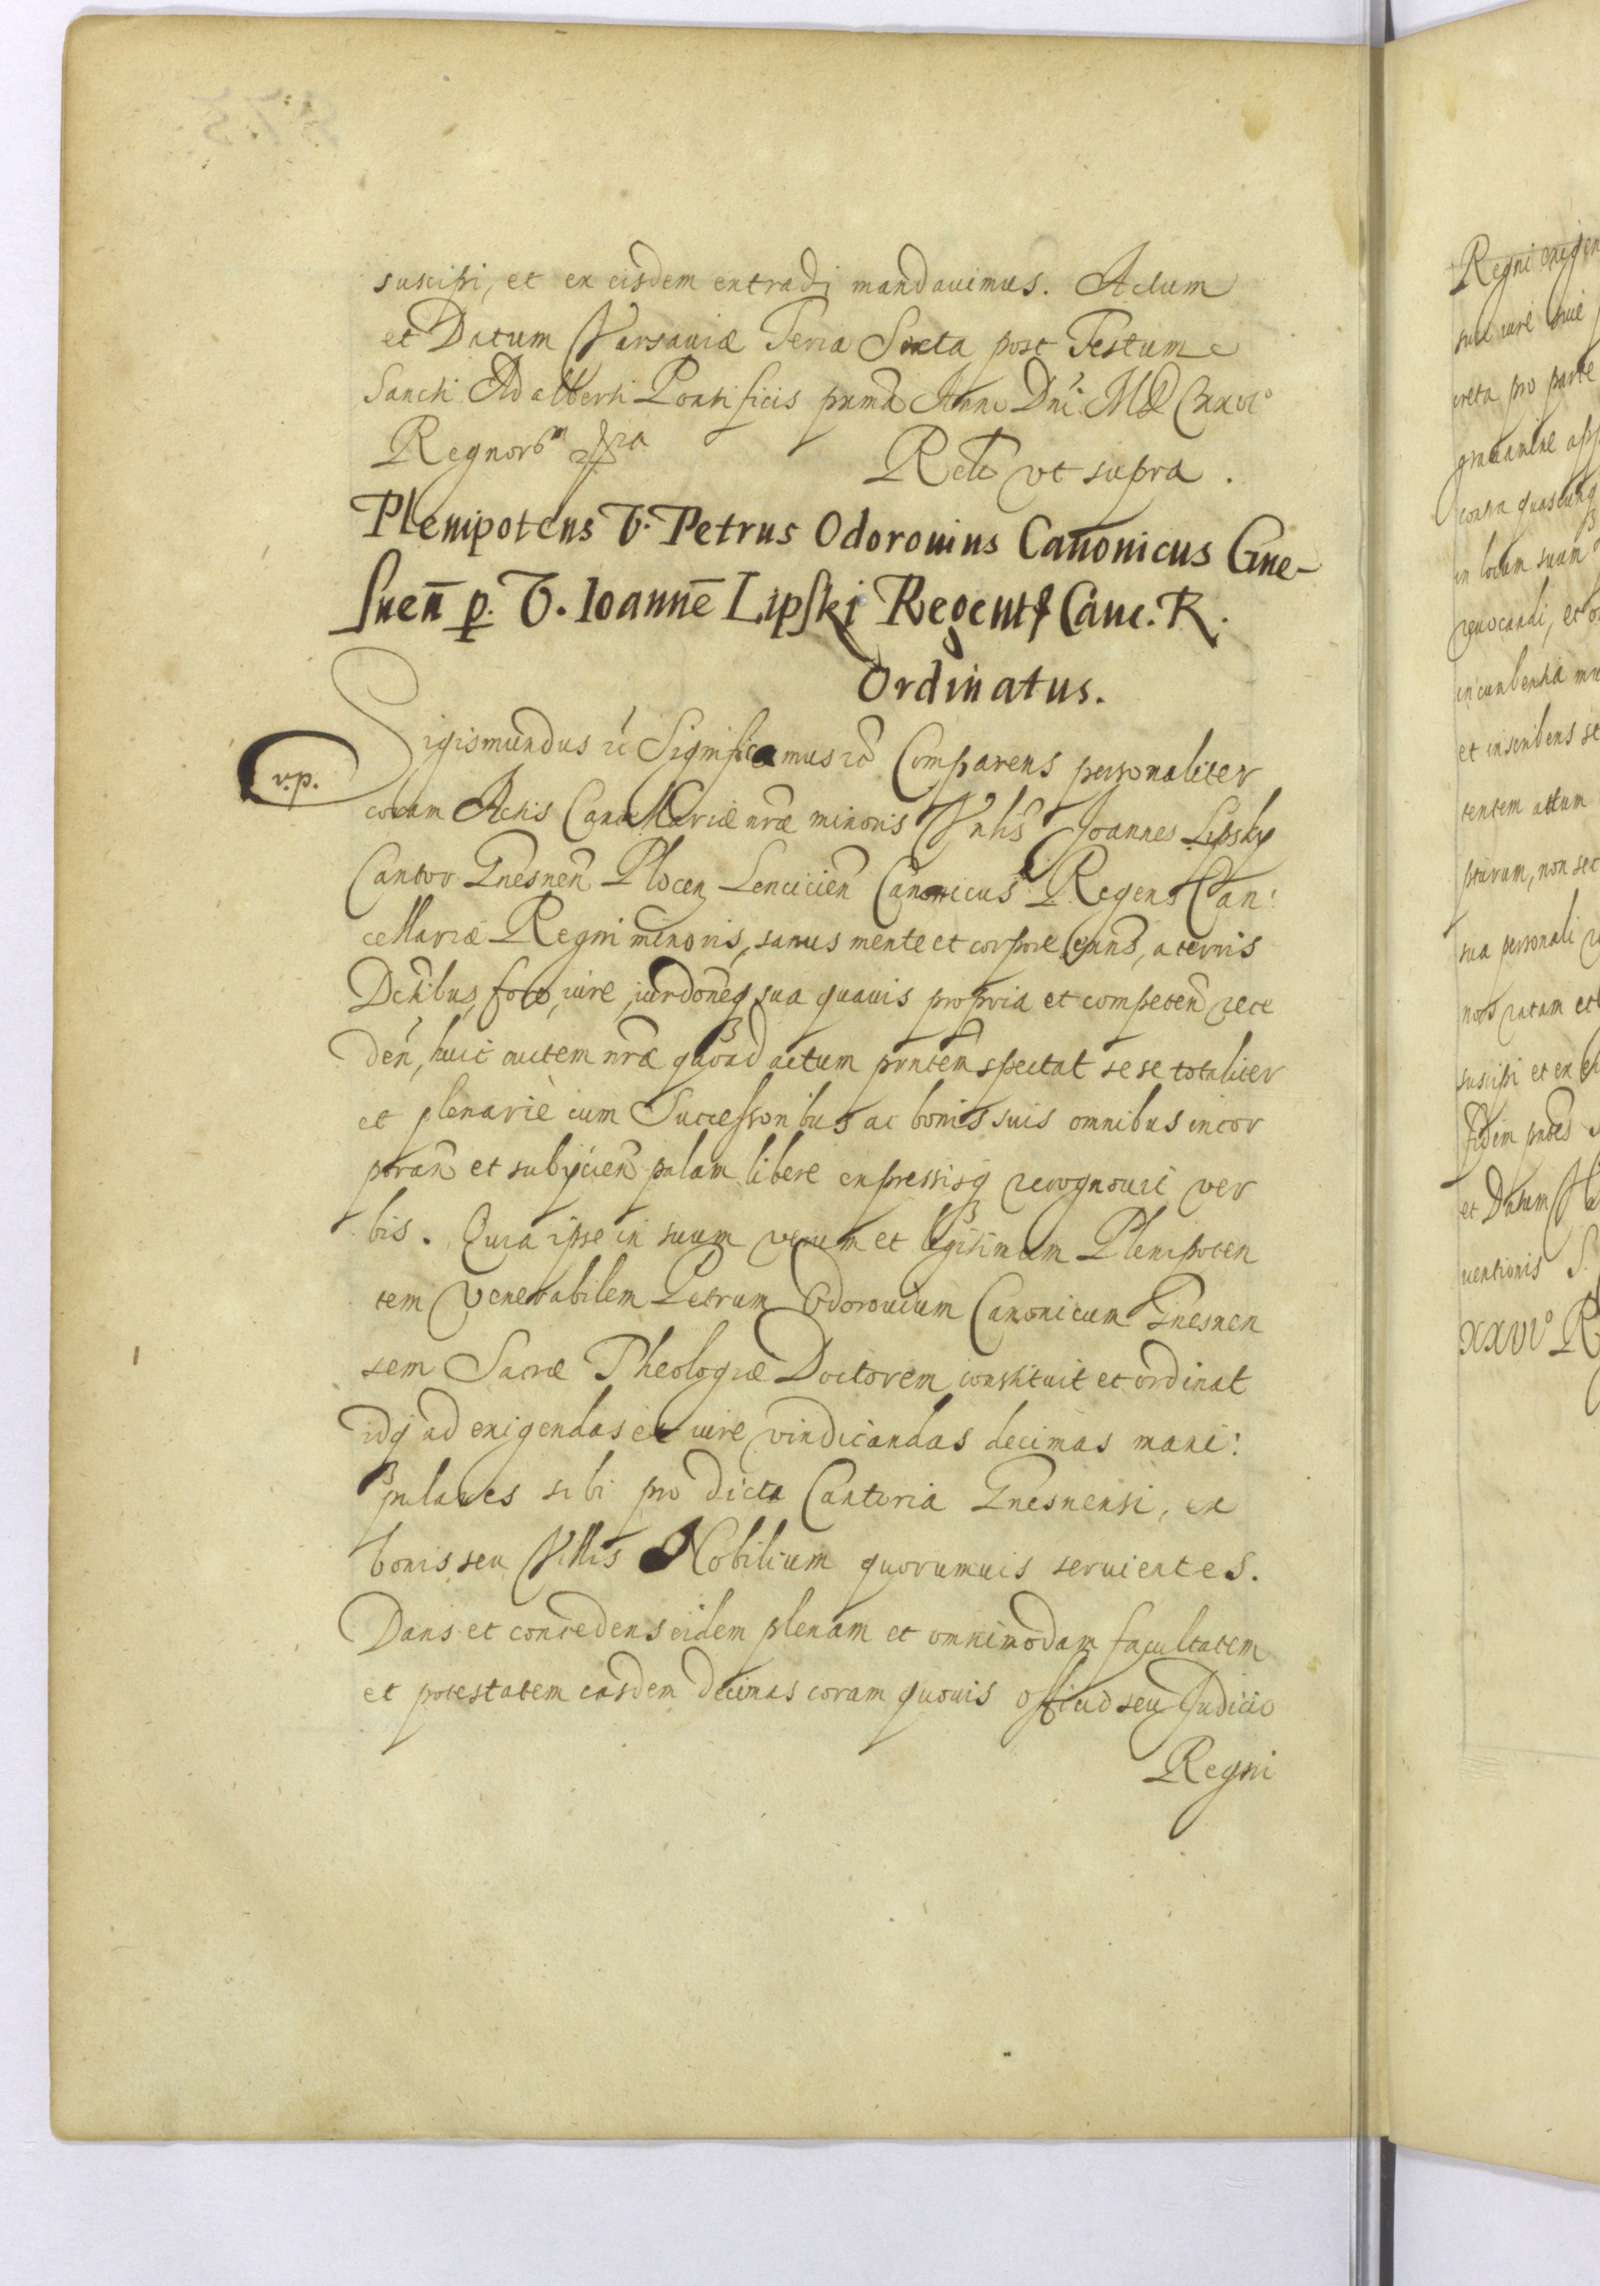 suscipi, et ex eisdem extradi mandauimus. Actum
et Datum Varsauiæ Feria Sexta post Festum
Sancti Adalberti Pontificis prima Anno Dni MDCXXVIº
Regnor
Relõ vt supra.
Plenipotens V. Petrus Odorouius Canonicus Gne-
snen̄ p. V. Ioannē Lipski Regentē Canc. R.
Ordinatus.
v.p.
Sigismundus Significamus Comparens personaliter
coram Actis Cancellariæ nræ minoris Vnlis Joannes Lipsky
Cantor Gnesnen Plocen Lencicien Canonicus Regens Can:
cellariæ Regni minoris, sanus mente et corpore exiens, a cernis
foro, iure, sua quauis propria et competen rece
den, huic autem nræ quoad actum pnten spectat se se totaliter
et plenariè cum Successoribus ac bonis suis omnibus incor
poran et subijcien palam libere expressisq recognouit ver
bis. Quia ipse in suum verum et legitimum Plenipoten
tem Venerabilem Petrum Odorouium Canonicum Gnesnen
sem Sacræ Theologiæ Doctorem constituit et ordinat
idq ad exigendas et iure vindicandas decimas mani:
pulares sibi pro dicta Cantoria Gnesnensi, ex
bonis seu Villis Nobilium quorumuis seruientes.
Dans et concedens eidem plenam et omnimodam facultatem
et potestatem easdem decimas coram quouis officio seu Judicio
Regni
Regni exigen
suæ iure siue
creta pro parte
grauamine
contra quascunq
in locum suum
reuocandi, et
incumbentia
et inscribens se
tentem actum
pturum, non sec
sua personali
nos ratam et
suscipi et ex
fidem pntes
et Datum
uentionis S.
XXVIº R